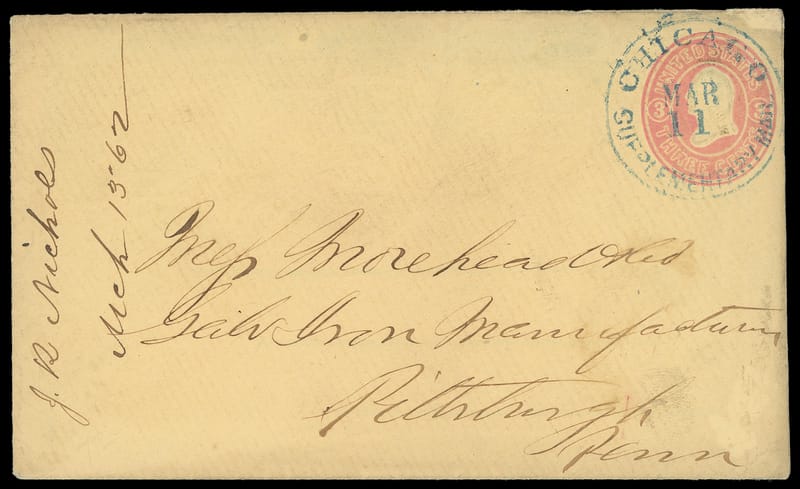 J. R. Nichols
Mch 13-62
CHICAGO
MAR
11
SUPPLEMENTARY MAIL
UNITED STATES
3 3
THREE CENTS
Mess Morehead & Co
Galv Iron Manufacturers
Pittsburgh
Penn